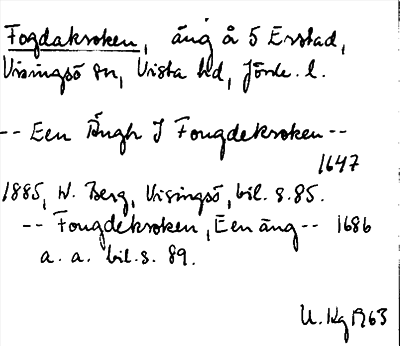 Fogdakroken, äng å 5 Erstad,
Visingsö sn, Vista hd, Jönk. l.
-- Een Ängh J Fougdekroken --
1647
1885, W. Berg, Visingsö, bil. s. 85.
-- Fougdekroken, Een äng -- 1686
a. a. bil. s. 89.
U. Kg 1963